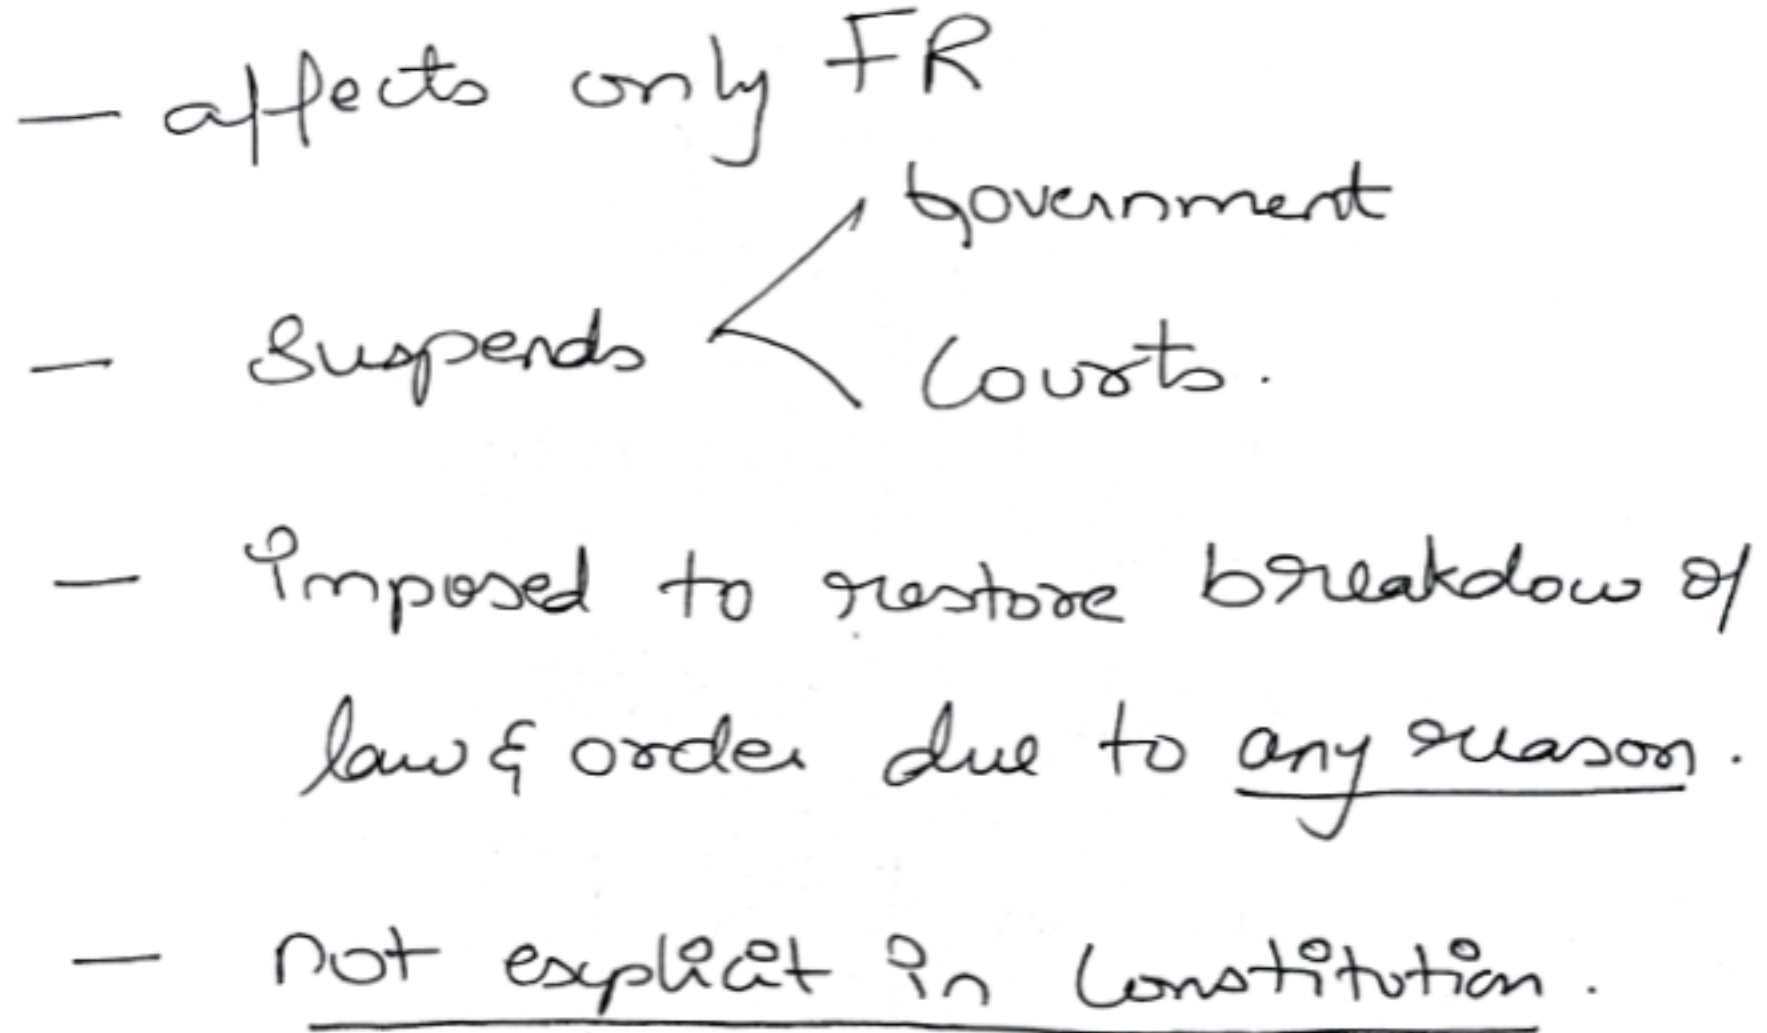 — affects only FR
Government
— Suspends
Courts.
— Imposed to restore breakdow of
law & order due to any reason.
— not explicit in Constitution.